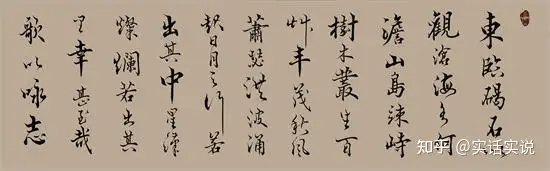 東臨碣石
觀滄海水何
澹山島竦峙
樹木叢生百
艸丰茂秋風
蕭瑟洪波涌
起日月之行若
出其中星漢
燦爛若出其
里幸甚至哉
歌以咏志
知乎 @实话实说